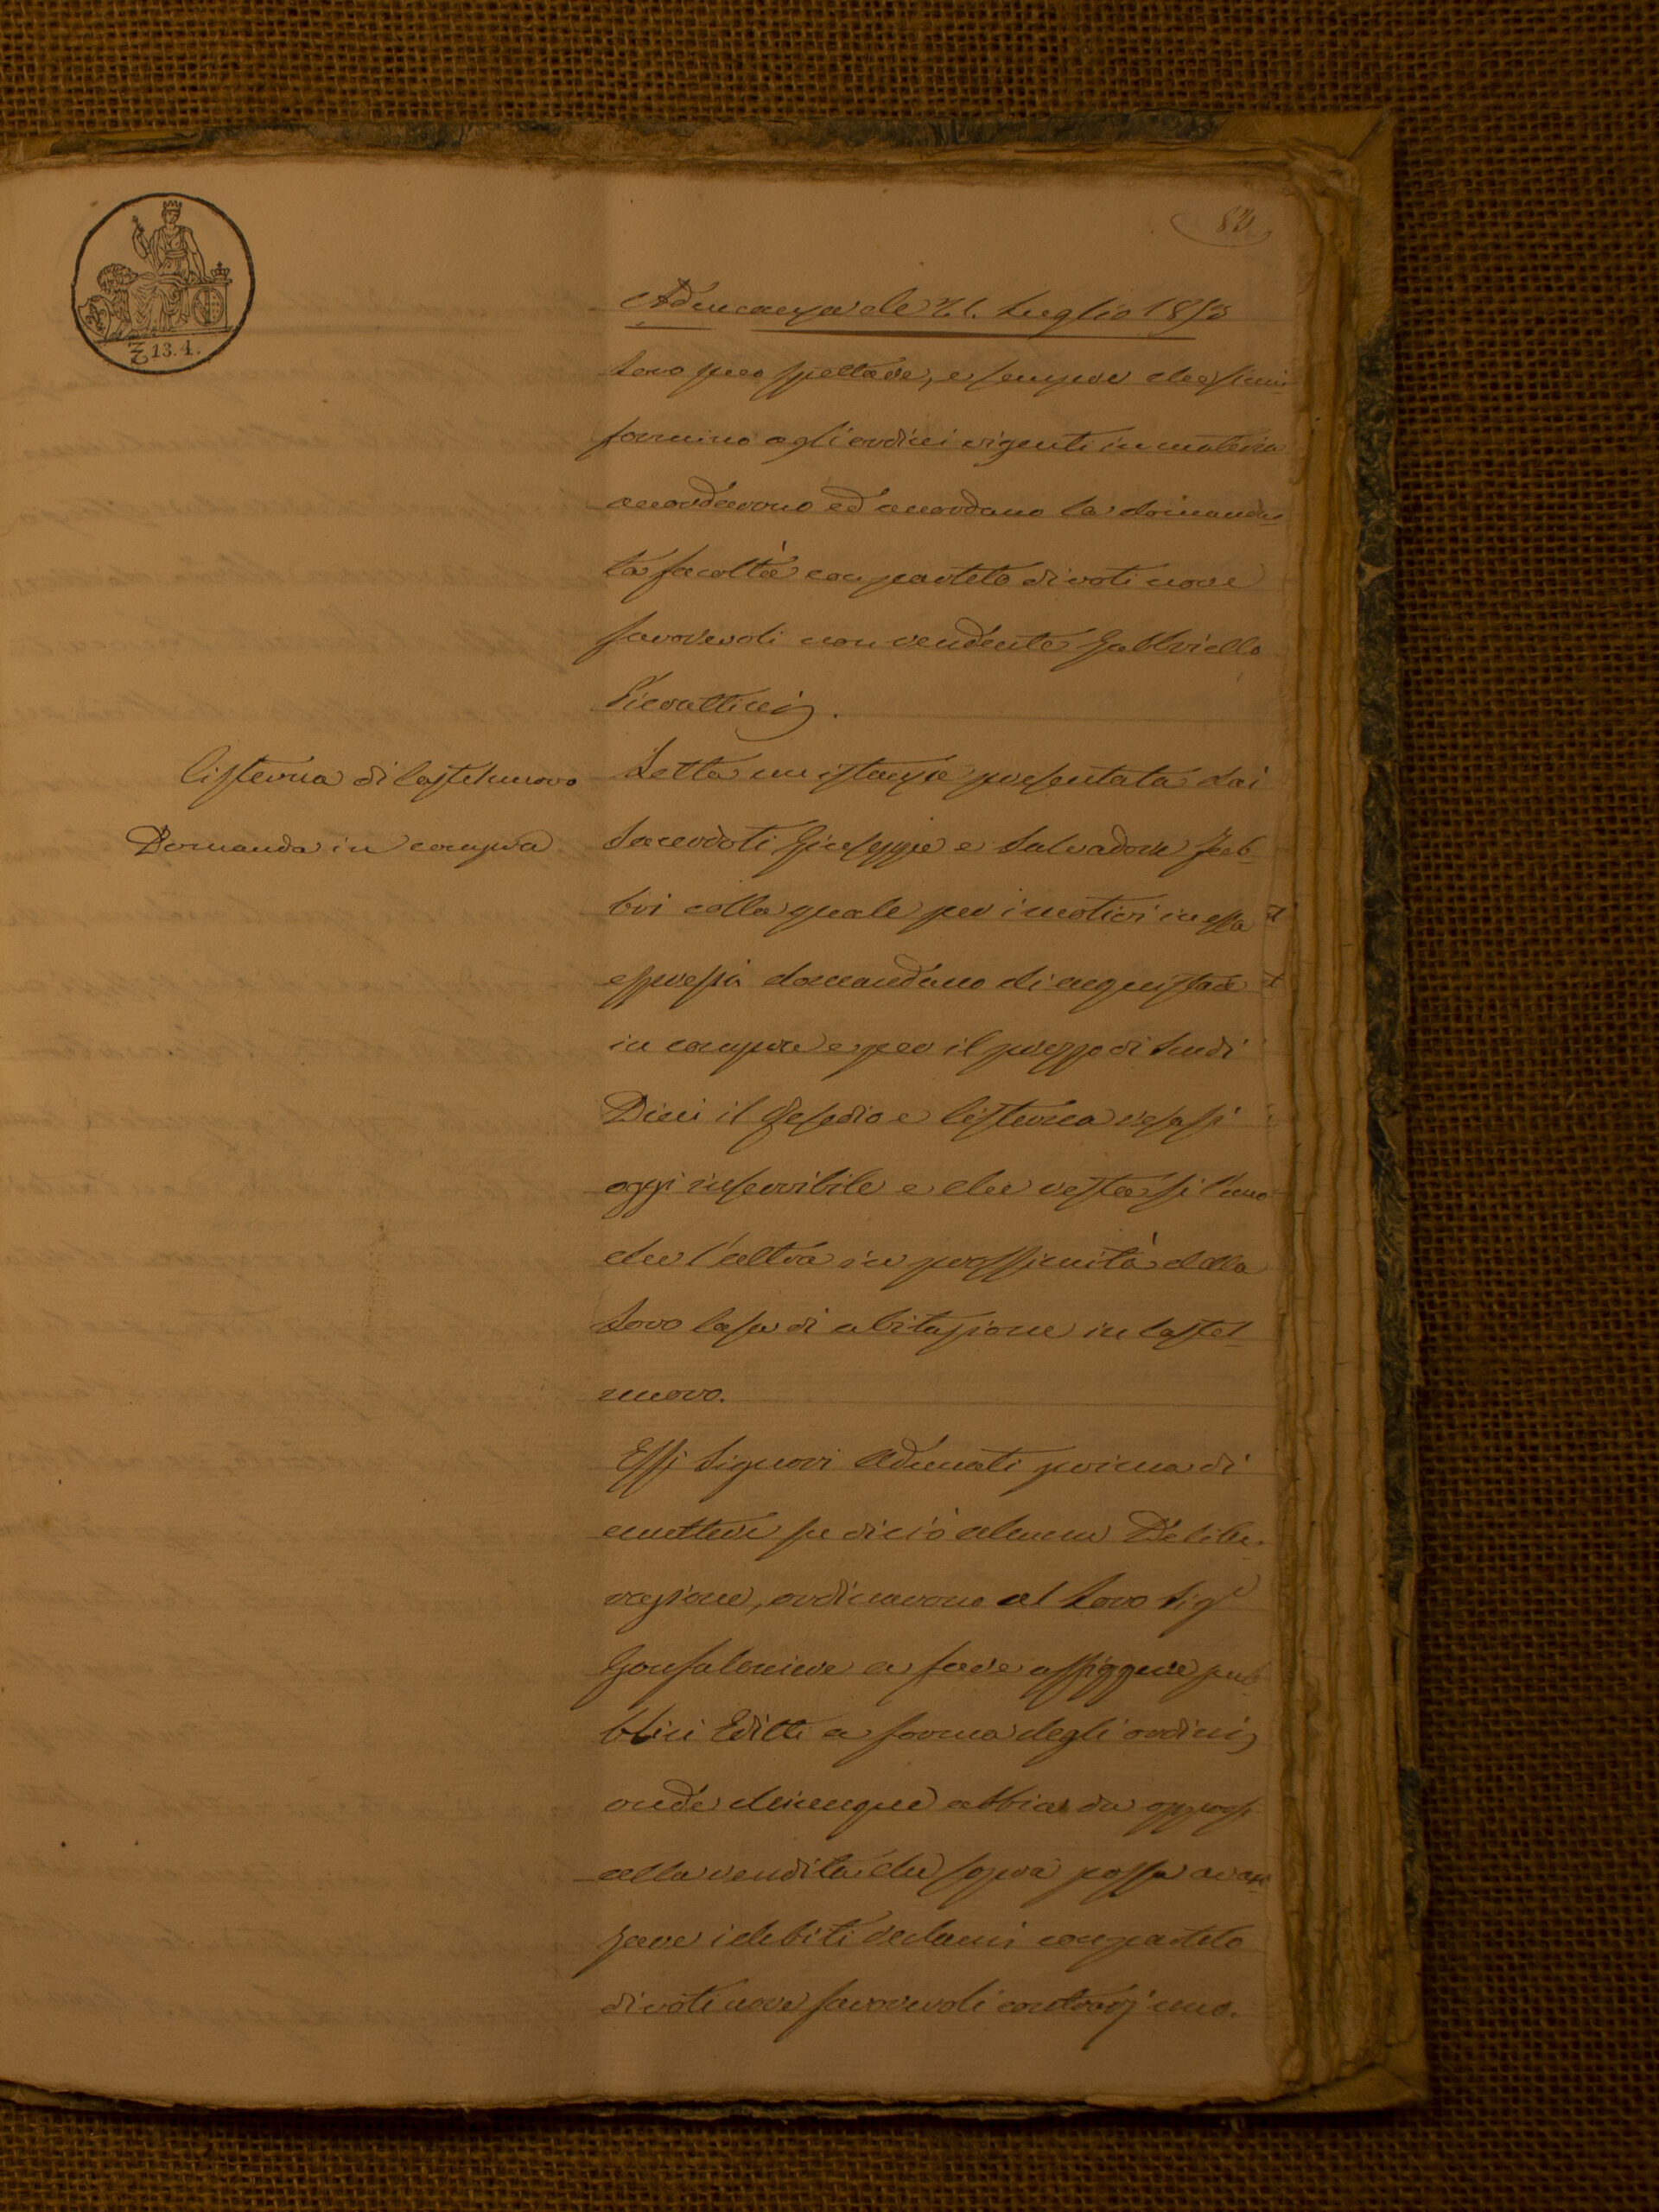 82
Adunanza del 21. Luglio 1853
Loro prospettare, e sempre che si uni
formino agli ordini vigenti in materia
accordarono ed accordano la domanda
ta facoltà con partito di voti nove
favorevoli non rendente Gabbriello
Pierattini.
Cisterna di Castelnuovo
Domanda in compra
Letta un istanza presentata dai
Sacerdoti Giuseppe e Salvadore Feb
bri colla quale per i motivi in essa
espressi domandano di acquistare
in compra e per il prezzo di Scudi
Dieci il e Cisterna resasi
oggi inservibile e che resta si l'uno
che l'altra in prossimità della
Loro Casa di abitazione in Castel
nuovo.
Essi Signori Adunati prima di
emettere su di ciò alcuna Delibe
razione, ordinarono al Loro Sig.e
Gonfaloniere a fare affiggere pub
blici Editti a forma degli ordini
onde chiunque abbia da opporsi
alla vendita che sopra possa avan
zare i debiti reclami con partito
di voti nove favorevoli contrarj uno.
13.4.